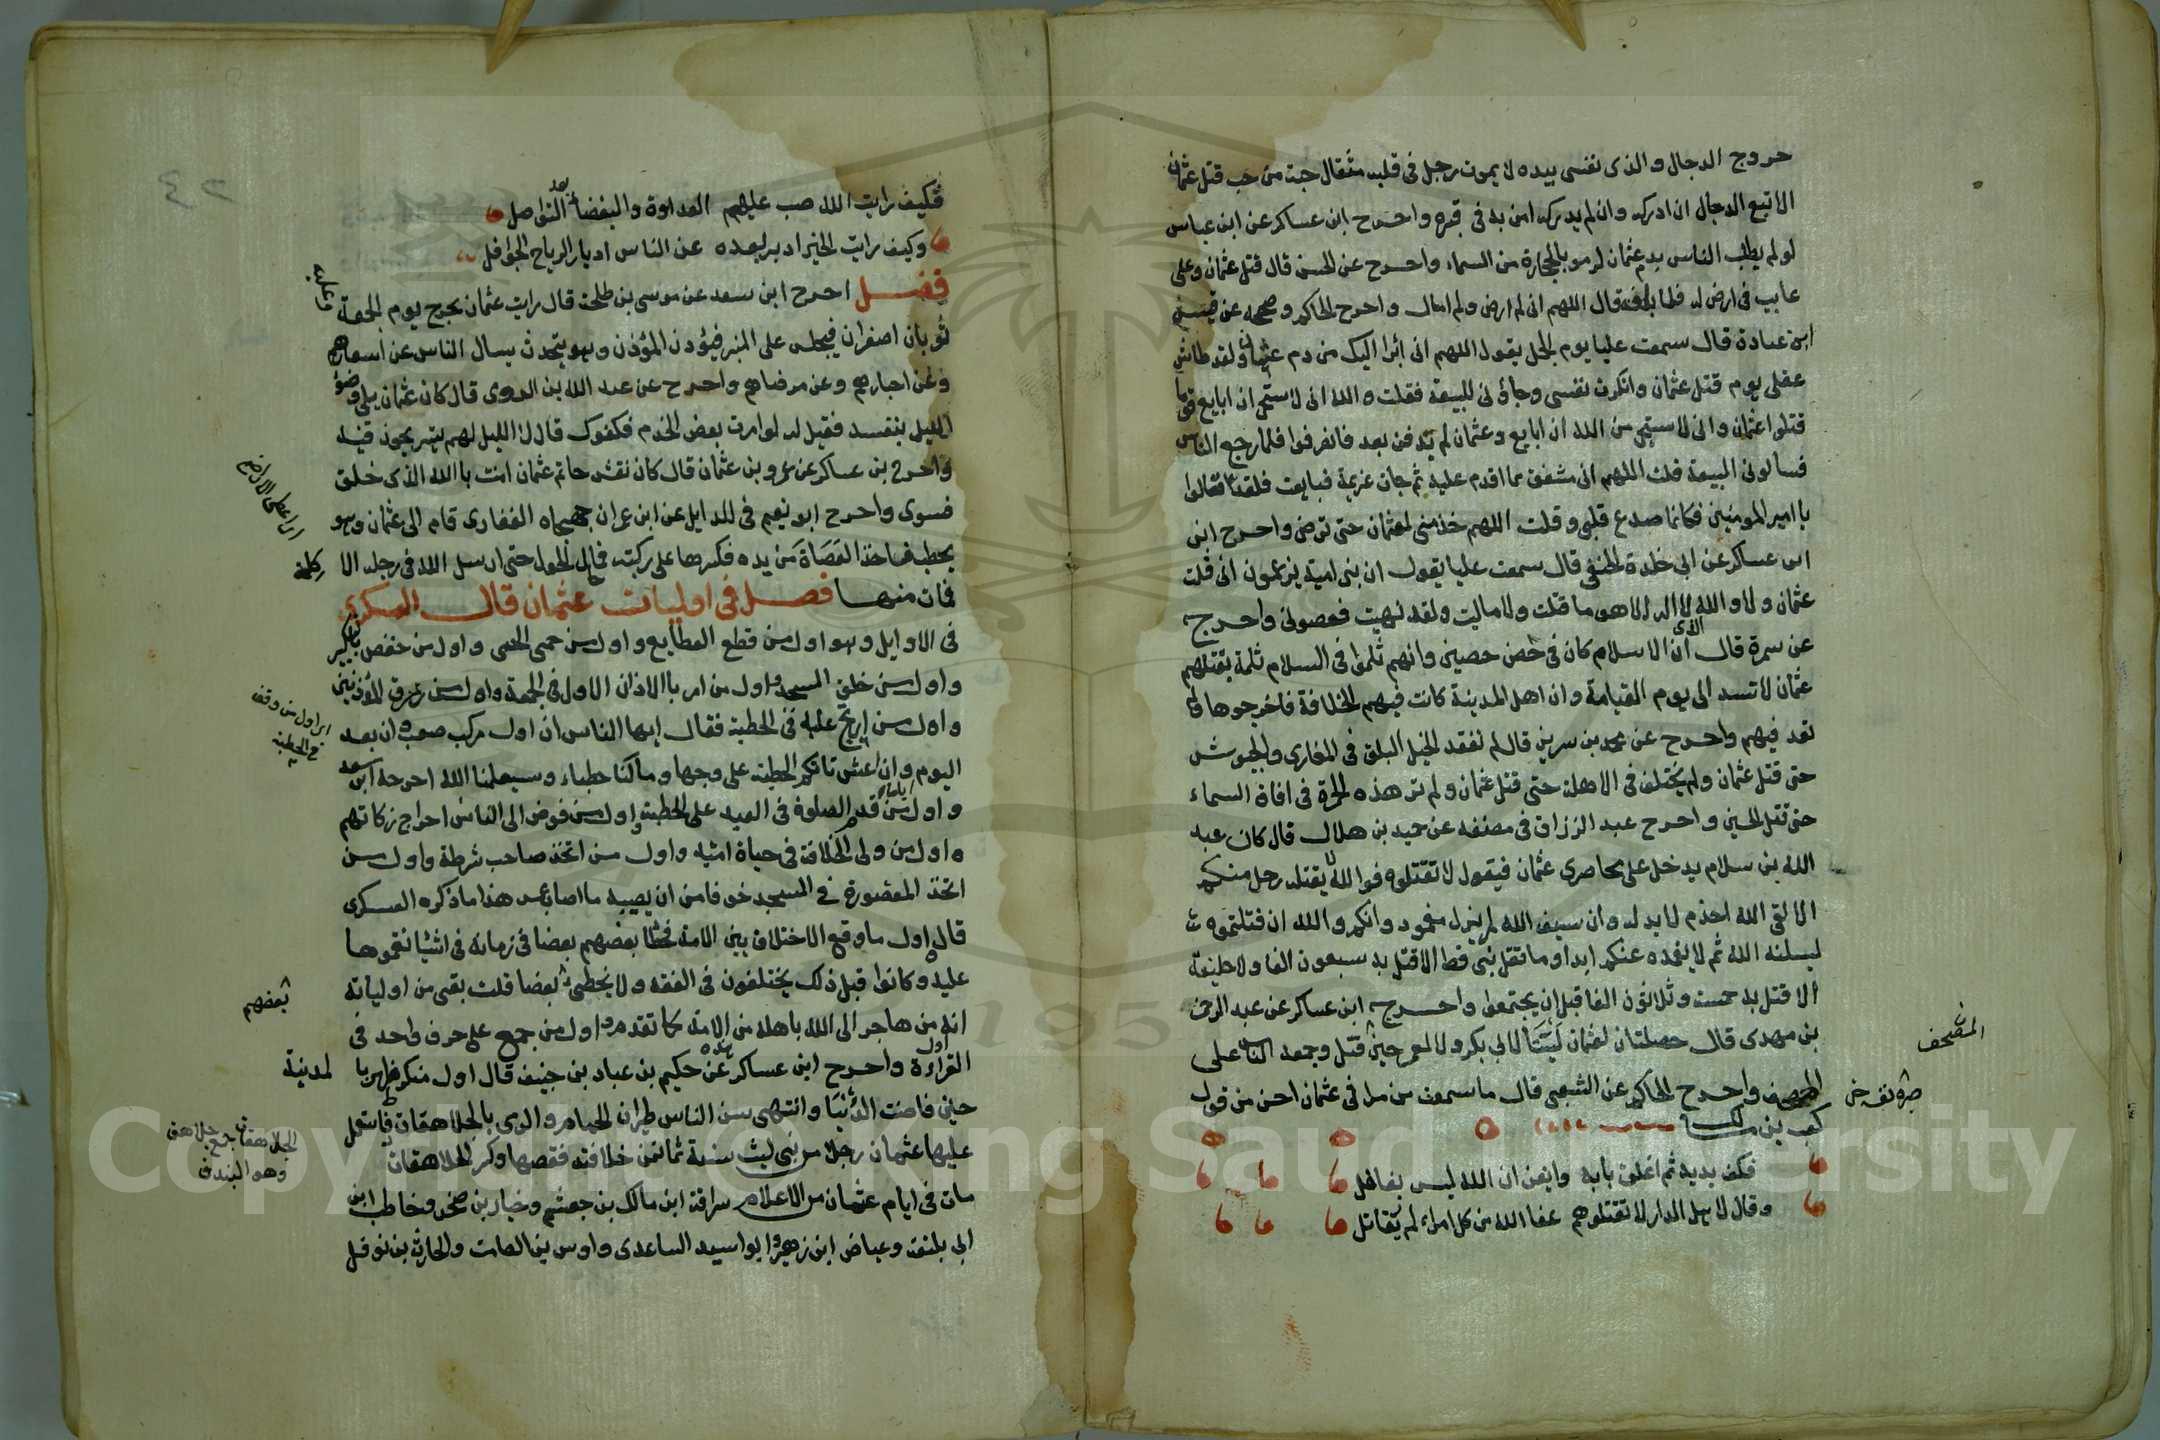 خروج الدجال والذى نفسى بيده لا يموت رجل فى قلبه مثقال حبة من حب قتل عثمان
الا تبع الدجال ان ادركه وان لم يدركه امن به فى قبره واخرج ابن عساكر عن ابن عباس
لو لم يطلب الناس بدم عثمان لرموا بالحجارة من السماء واخرج عن الحسن قال قتل عثمان وعلى
غايب فى ارض له فلما بلغه قال اللهم انى لم ارض ولم امال واخرج الحاكم وصححه عن قيس
ابن عبادة قال سمعت عليا يوم الجمل يقول اللهم انى ابرا اليك من دم عثمان ولقد طاش
عقلى يوم قتل عثمان وانكرت نفسى وجاؤنى للبيعة فقلت والله انى لاستحى ان ابايع قوما
قتلوا عثمان وانى لاستحى من الله ان ابايع وعثمان لم يدفن بعد فانصرفوا فلما رجع الناس
فسالونى البيعة قلت اللهم انى مشفق مما اقدم عليه ثم جات عزيمة فبايعت فلقد قالوا
يا امير المومنين فكانما صدع قلبى وقلت اللهم خذ منى لعثمان حتى ترضى واخرج ابن
ابن عساكر عن ابى خلدة الحنفى قال سمعت عليا يقول ان بنى امية يزعمون انى قتلت
عثمان ولا والله الذى لا اله الا هو ما قتلت ولا ماليت ولقد نهيت فعصونى واخرج
عن سمرة قال ان الاسلام كان فى حصن حصين وانهم ثلموا فى السلام ثلمة بقتلهم
عثمان لا تسد الى يوم القيامة وان اهل المدينة كانت فيهم الخلافة فاخرجوها ولم
تعد فيهم واخرج عن محمد بن سرين قال لم تفقد الخيل البلق فى المغازى والجيوش
حتى قتل عثمان ولم يختلف فى الاهلة حتى قتل عثمان ولم تر هذه الحمرة فى افاق السماء
حتى قتل الحسين واخرج عبد الرزاق فى مصنفه عن حميد بن هلال قال كان عبد
الله بن سلام يدخل على محاصرى عثمان فيقول لا تقتلوه فوالله لا يقتله رجل منكم
الا لقى الله اجذم لا يد له وان سيف الله لم يزل مغمود وانكم والله ان قتلتموه
ليسلنه الله ثم لا يغمده عنكم ابدا وما قتل نبى قط الا قتل به سبعون الفا ولا خليفة
الا قتل به خمسة وثلاثون الفا قبل ان يجتمعوا واخرج ابن عساكر عن عبد الرحمن
بن مهدى قال خصلتان لعثمان ليستا لابى بكر ولا لعمر حين قتل وجمعه الناس على
المصحف واخرج الحاكم عن الشعبى قال ما سمعت من مراثى عثمان احسن من قول
كعب بن مالك
فكف يديه ثم اغلق بابه وايقن ان الله ليس بغافل
وقال لاهل الدار لا تقتلوهم عفا الله عن كل امرء لم يقاتل
المصحف
صبره نفسه حتى
فكيف رايت الله صب عليهم العداوة والبغضا بعد التواصل
وكيف رايت الخير ادبر بعده عن الناس ادبار الرياح الجوافل
فصل اخرج ابن سعد عن موسى بن طلحة قال رايت عثمان يخرج يوم الجمعة
وعليه
ثوبان اصفران فيجلس على المنبر فيؤذن المؤذن وهو يتحدث يسال الناس عن اسعارهم
وعن اخبارهم وعن مرضاهم واخرج عن عبد الله بن الرومى قال كان عثمان يلى وضوء
الليل بنفسه فقيل له لو امرت بعض الخدم فكفوك قال لا الليل لهم يستريحون فيه
واخرج بن عساكر عن عمرو بن عثمان قال كان نقش خاتم عثمان امنت بالله الذى خلق
فسوى واخرج ابو نعيم فى الدلايل عن ابن عمران جهجاه الغفارى قام الى عثمان وهو
يخطب فاخذ العصاة من يده فكسرها على ركبته فما حال الحول حتى ارسل الله فى رجله الا
كله
فمات منها فصل فى اوليات عثمان قال العسكرى
فى الاوايل وهو اول من قطع القطايع واول من حمى الحمى واول من خفض بالتكبير
واول من خلق المسجد واول من امر بالاذان الاول فى الجمعة واول من رزق المؤذنين
واول من ارتج عليه فى الخطبة فقال ايها الناس ان اول مركب صعب وان بعد
اى اول من وقف
فى الخطبة
اليوم وان اعش تاتكم الخطبة على وجهها وما كنا خطباء وسيعلمنا الله اخرجه ابن سعد
واول من قدم الصلوة فى العيد على الخطبة واول من فوض الى الناس اخراج زكاتهم
واول من ولى الخلافة فى حياة امه واول من اتخذ صاحب شرطة واول من
اتخذ المقصورة فى المسجد خوفا من ان يصيبه ما اصاب عمر هذا ما ذكره العسكرى
قال اول ما وقع الاختلاف بين الامة فخطا بعضهم بعضا فى زمانه فى اشيا نقموها
عليه وكانوا قبل ذلك يختلفون فى الفقه ولا يخطى بعضا قلت بقى من اولياته
بعضهم
انه من هاجر الى الله باهله من الامة كما تقدم واول من جمع على حرف واحد فى
القراءة واخرج ابن عساكر عن حكيم بن عباد بن حنيف قال اول منكر ظهر با
لمدينة
حين فاضت الدنيا وانتهى سمن الناس طيران الحمام والرمى بالجلاهقات فاستعمل
الجلاهقات جمع جلاهق
وهو البندق
عليها عثمان رجلا من بنى ليث سنة ثمان من خلافته فقصها وكسر الجلاهقات
مات فى ايام عثمان من الاعلام سراقة ابن مالك بن جعشم وخيار بن صخر وحاطب ابن
ابى بلتعة وعياض ابن زهير وابو اسيد الساعدى واوس بن الصامت والحارث بن نوفل
Copyright © King Saud University
195